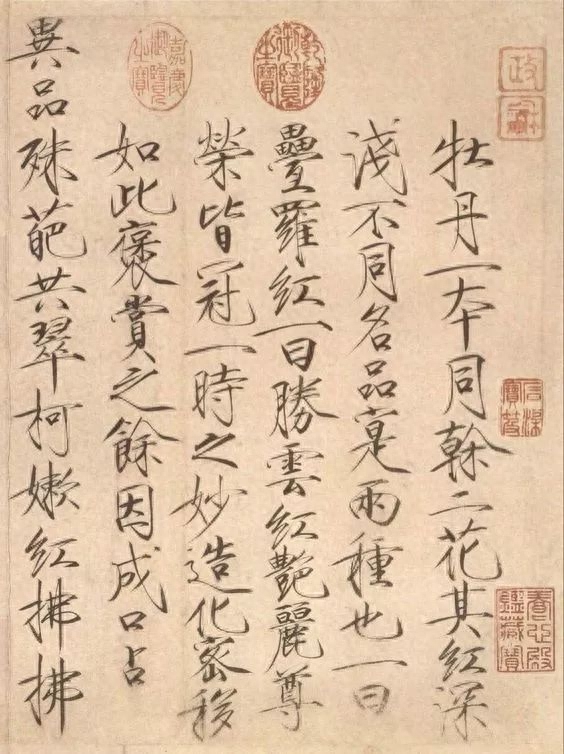 牡丹一夲同榦二花其紅深
淺不同名品寔兩種也一曰
疊羅紅一曰勝雲紅艷麗尊
榮皆冠一時之妙造化密移
如此褒賞之餘因成口占
異品殊葩共翠柯嫩紅拂拂
乾隆御覽之寶
嘉慶御覽之寶
養心殿鑑藏寶